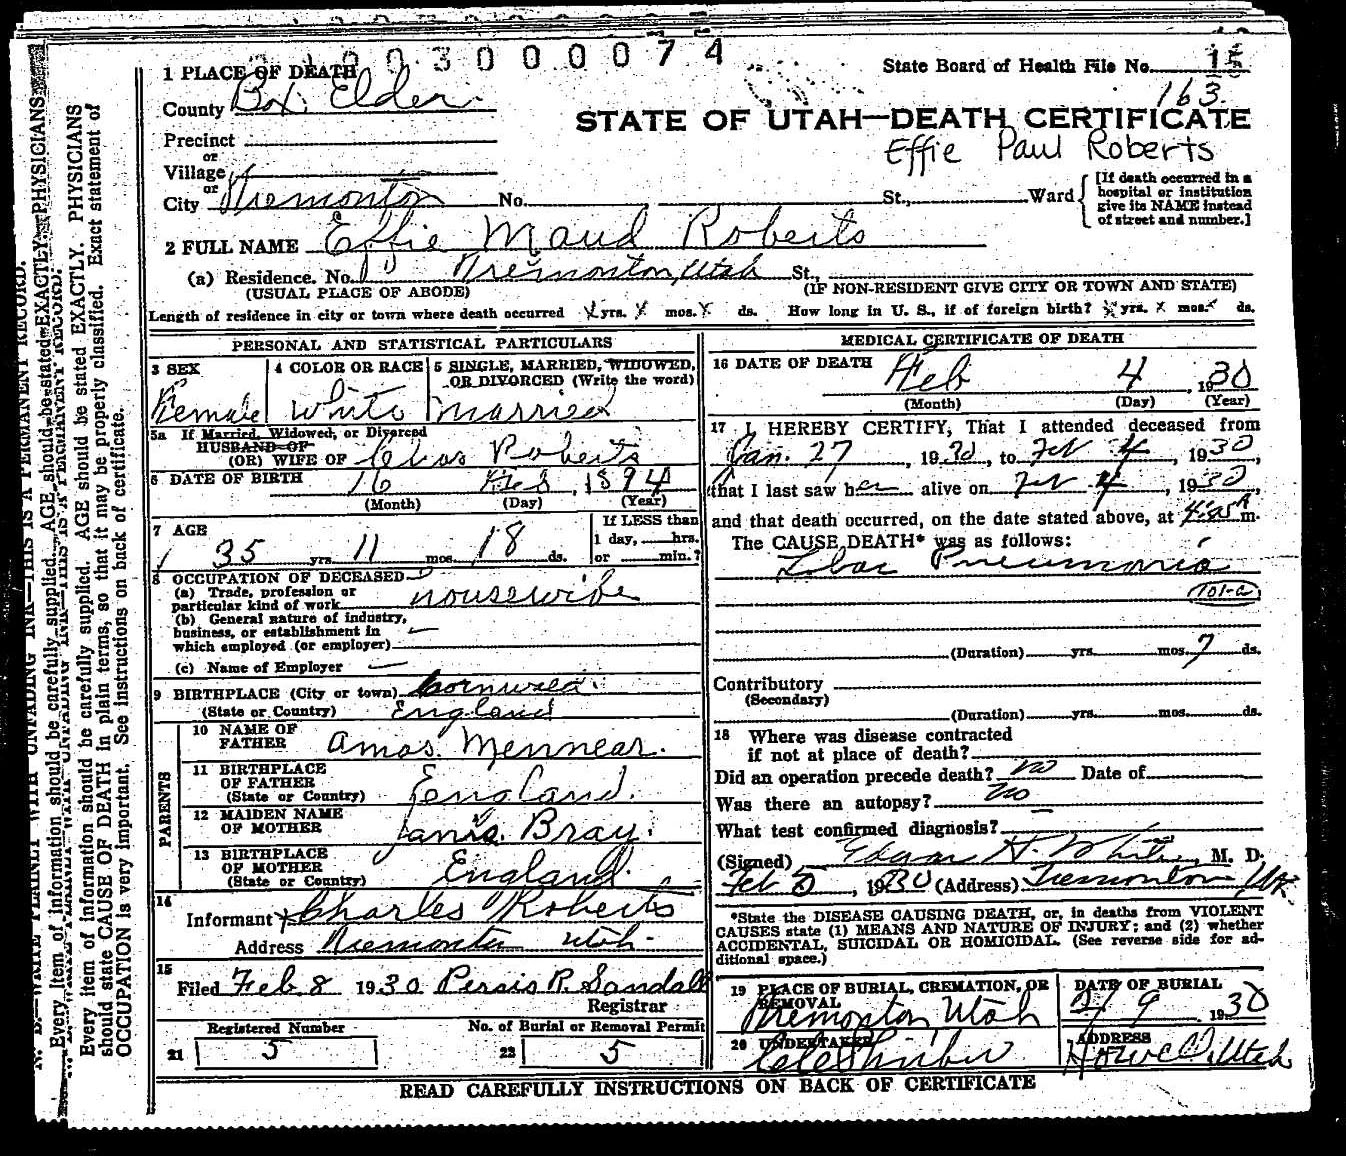 3 0 0 0 0 7 4
State Board of Health File No. 15
163
1 PLACE OF DEATH
County Box Elder
STATE OF UTAH—DEATH CERTIFICATE
Effie Paul Roberts
Precinct
or
Village
or
City Tremonton No. St., Ward
[If death occurred in a hospital or institution give its NAME instead of street and number.]
2 FULL NAME Effie Maud Roberts
(a) Residence. No. Tremonton, Utah St.,
(USUAL PLACE OF ABODE) (IF NON-RESIDENT GIVE CITY OR TOWN AND STATE)
Length of residence in city or town where death occurred yrs. mos. ds. How long in U. S., if of foreign birth? yrs. mos. ds.
PERSONAL AND STATISTICAL PARTICULARS
3 SEX
Female
4 COLOR OR RACE
White
5 SINGLE, MARRIED, WIDOWED, OR DIVORCED (Write the word)
married
5a If Married, Widowed, or Divorced
HUSBAND OF
(OR) WIFE OF Chas Roberts
6 DATE OF BIRTH 16 Feb, 1894
(Month) (Day) (Year)
7 AGE
35 yrs. 11 mos. 18 ds.
If LESS than
1 day, hrs.
or min.?
8 OCCUPATION OF DECEASED
(a) Trade, profession or
particular kind of work housewife
(b) General nature of industry,
business, or establishment in
which employed (or employer)
(c) Name of Employer
9 BIRTHPLACE (City or town) Cornwall
(State or Country) England
PARENTS
10 NAME OF FATHER Amos Mennear.
11 BIRTHPLACE OF FATHER (State or Country) England.
12 MAIDEN NAME OF MOTHER Bray.
13 BIRTHPLACE OF MOTHER (State or Country) England.
14
Informant Charles Roberts
Address Tremonton Utah.
15
Filed Feb 8 1930 Persis R. Sandall
Registrar
Registered Number No. of Burial or Removal Permit
21 5 22 5
MEDICAL CERTIFICATE OF DEATH
16 DATE OF DEATH Feb 4, 1930
(Month) (Day) (Year)
17 I HEREBY CERTIFY, That I attended deceased from
Jan. 27, 1930, to Feb 4, 1930,
that I last saw her alive on Feb 4, 1930,
and that death occurred, on the date stated above, at A m.
The CAUSE DEATH* was as follows:
Lobar Pneumonia
101-a
(Duration) yrs. mos. 7 ds.
Contributory
(Secondary)
(Duration) yrs. mos. ds.
18 Where was disease contracted
if not at place of death?
Did an operation precede death? no Date of
Was there an autopsy? no
What test confirmed diagnosis?
(Signed) H. M. D.
Feb 5, 1930 (Address) Tremonton Utah
*State the DISEASE CAUSING DEATH, or, in deaths from VIOLENT
CAUSES state (1) MEANS AND NATURE OF INJURY; and (2) whether
ACCIDENTAL, SUICIDAL OR HOMICIDAL. (See reverse side for ad-
ditional space.)
19 PLACE OF BURIAL, CREMATION, OR REMOVAL
Tremonton, Utah
DATE OF BURIAL
2/9 1930
20 UNDERTAKER
ADDRESS
Howell, Utah
READ CAREFULLY INSTRUCTIONS ON BACK OF CERTIFICATE
N. B.—WRITE PLAINLY WITH UNFADING INK—THIS IS A PERMANENT RECORD.
Every item of information should be carefully supplied. AGE should be stated EXACTLY. PHYSICIANS
Every item of information should be carefully supplied. AGE should be stated EXACTLY. PHYSICIANS
should state CAUSE OF DEATH in plain terms, so that it may be properly classified. Exact statement of
OCCUPATION is very important. See instructions on back of certificate.